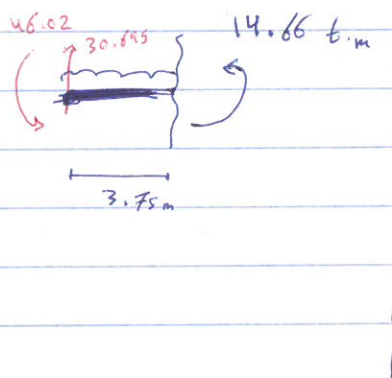 46.02
30.695
14.66 t.m
3.75m